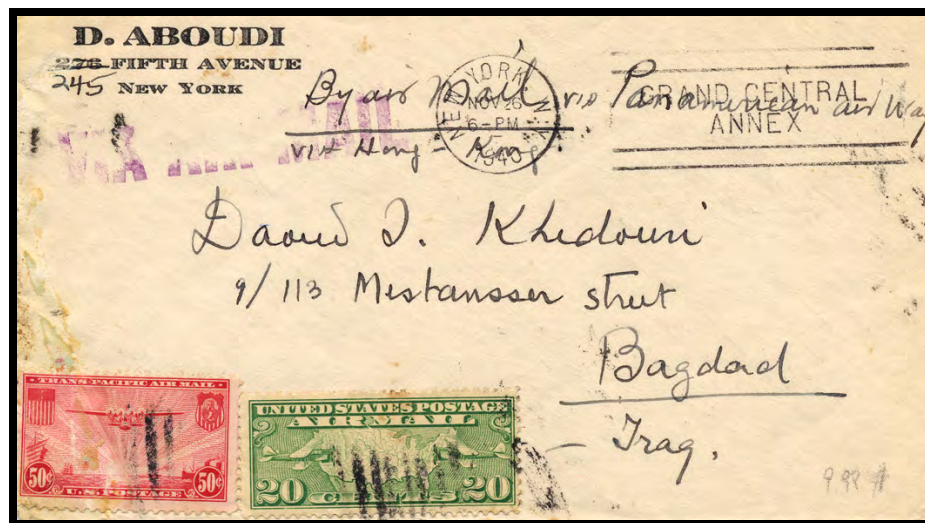 D. ABOUDI
226 FIFTH AVENUE
245 NEW YORK
By air Mail via Panamerican air Way
via Hong Kong
VIA AIR MAIL
NEW YORK, N.Y.
NOV 26
6-PM
1940
GRAND CENTRAL
ANNEX
Daoud I. Khedouri
9/113 Mestansser street
Bagdad
Iraq.
TRANS-PACIFIC AIR MAIL
50¢ 50¢
U.S. POSTAGE
UNITED STATES POSTAGE
AIR MAIL
20 CENTS 20